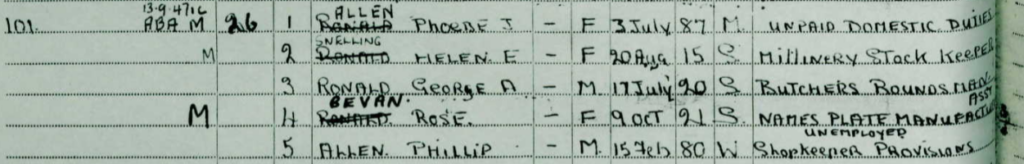 101. 13-9-47 LC ABA M 26 1 ALLEN RONALD PHOEBE J - F 3 July 87 M. UNPAID DOMESTIC DUTIES
M 2 SNELLING RONALD HELEN. E - F 20 Aug 15 S. Millinery Stock Keeper
3 RONALD GEORGE A - M. 17 July 20 S. BUTCHERS ROUNDSMAN
M 4 BEVAN. RONALD. ROSE. - F 9 OCT 21 S. NAMES PLATE MANUFACTU ASST
5 ALLEN. PHILLIP - M. 15 Feb 80 W UNEMPLOYED Shopkeeper PROVISIONS